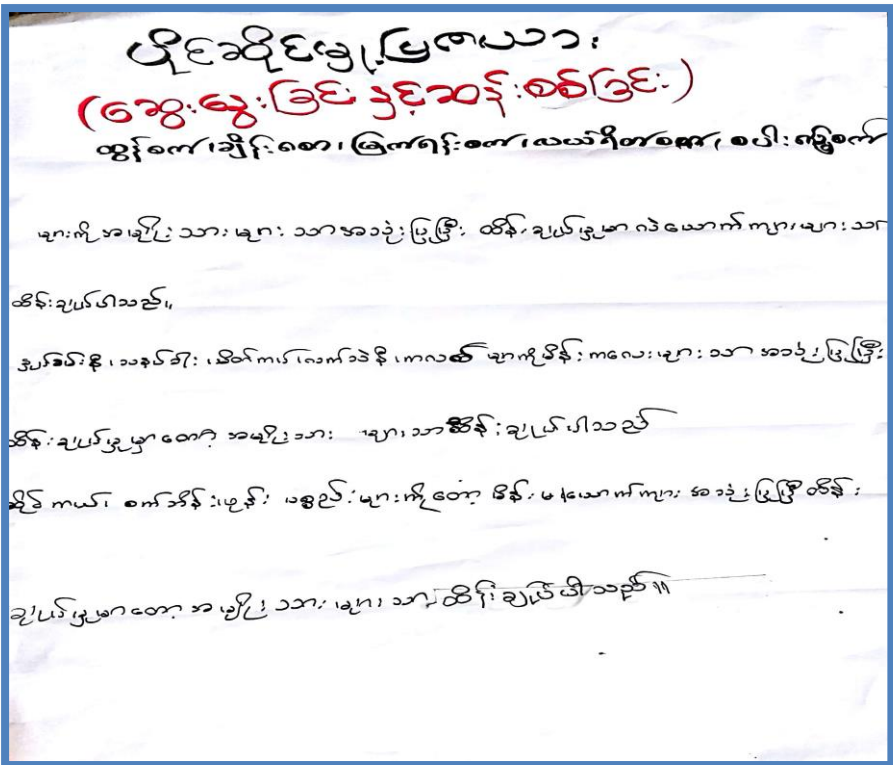 ပိုင်ဆိုင်မှု့ပြဇယား
(ဆွေးနွေးခြင်း နှင့်ဆန်းစစ်ခြင်း)
ထွန်စက်၊ချိန်းစော၊မြက်ရန်းစက်၊လယ်ရိတ်စက်၊ စပါးကြိတ်စက်
များကိုအမျိုးသားများ သာအသုံးပြုပြီး ထိန်းချုပ်မှုမှာလဲယောက်ကျားများသာ
ထိန်းချုပ်ပါသည်။
များကိုမိန်းကလေးများသာ အသုံးပြုပြီး
ထိန်းချုပ်မှုမှာတော့ အမျိုးသား များသာထိန်းချုပ်ပါသည်
ဆိုင်ကယ်၊ စက်ဘီးဖုန်း ပစ္စည်းများကိုတော့ မိန်းမ၊ယောက်ကျား အသုံးပြုပြီးထိန်း
ချုပ်မှုမှာတော့ အမျိုးသားများသာထိန်းချုပ်ပါသည်။